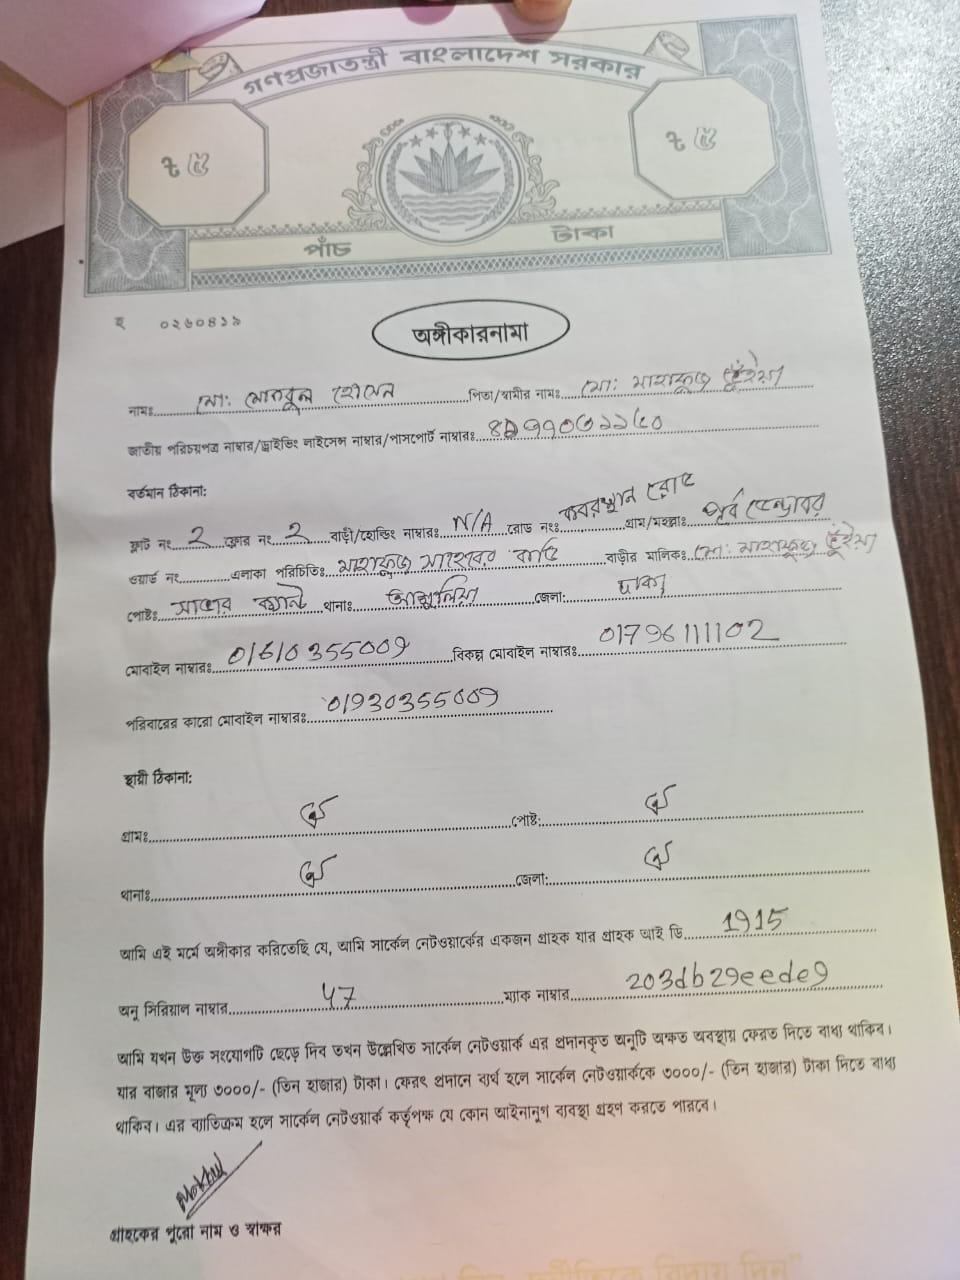 গণপ্রজাতন্ত্রী বাংলাদেশ সরকার
৳ ৫ ৳ ৫
পাঁচ টাকা
০২৬০৪১৯
অঙ্গীকারনামা
নামঃ মো: মোকবুল হোসেন পিতা/স্বামীর নামঃ মো: মাহফুজ ভূঁইয়া
জাতীয় পরিচয়পত্র নাম্বার/ড্রাইভিং লাইসেন্স নাম্বার/পাসপোর্ট নাম্বারঃ
বর্তমান ঠিকানা:
ফ্লাট নং 2 ফ্লোর নং 2 বাড়ী/হোল্ডিং নাম্বারঃ N/A রোড নংঃ কবরস্থান রোড গ্রাম/মহল্লাঃ পূর্ব ডেন্ডাবর
ওয়ার্ড নং এলাকা পরিচিতিঃ মাহফুজ সাহেবের বাড়ি বাড়ীর মালিকঃ মো: মাহফুজ ভূঁইয়া
পোষ্টঃ সাভার ক্যান্ট থানাঃ আশুলিয়া জেলা: ঢাকা
মোবাইল নাম্বারঃ 01610355009 বিকল্প মোবাইল নাম্বারঃ 01796111102
পরিবারের কারো মোবাইল নাম্বারঃ 01930355009
স্থায়ী ঠিকানা:
গ্রামঃ ঐ পোষ্ট: ঐ
থানাঃ ঐ জেলা: ঐ
আমি এই মর্মে অঙ্গীকার করিতেছি যে, আমি সার্কেল নেটওয়ার্কের একজন গ্রাহক যার গ্রাহক আই ডি 1915
অনু সিরিয়াল নাম্বার 47 ম্যাক নাম্বার 203db29eede9
আমি যখন উক্ত সংযোগটি ছেড়ে দিব তখন উল্লেখিত সার্কেল নেটওয়ার্ক এর প্রদানকৃত অনুটি অক্ষত অবস্থায় ফেরত দিতে বাধ্য থাকিব।
যার বাজার মূল্য ৩০০০/- (তিন হাজার) টাকা। ফেরৎ প্রদানে ব্যর্থ হলে সার্কেল নেটওয়ার্ককে ৩০০০/- (তিন হাজার) টাকা দিতে বাধ্য
থাকিব। এর ব্যাতিক্রম হলে সার্কেল নেটওয়ার্ক কর্তৃপক্ষ যে কোন আইনানুগ ব্যবস্থা গ্রহণ করতে পারবে।
Mokbul
গ্রাহকের পুরো নাম ও স্বাক্ষর